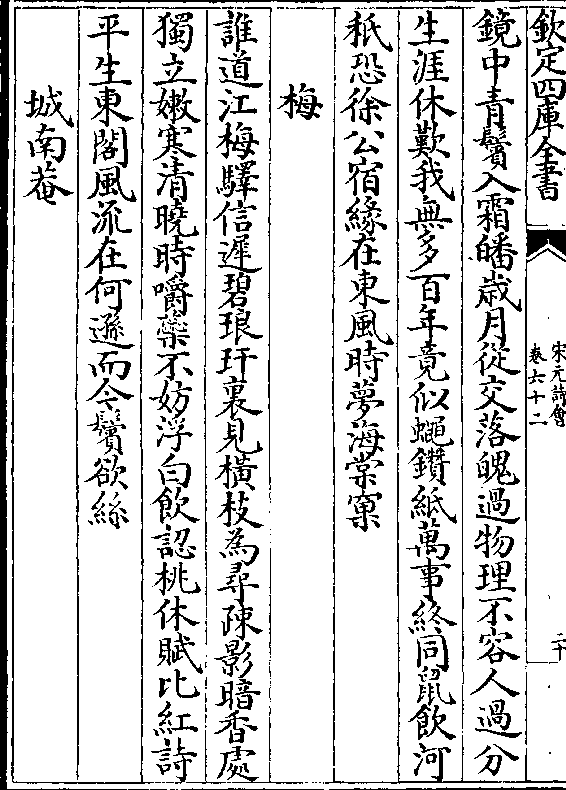 欽定四庫全書
宋元詩會
卷六十二
二十
鏡中青鬢入霜皤歳月從交落魄過物理不容人過分
生涯休歎我無多百年竟似蠅鑽紙萬事終同鼠飲河
秖恐徐公宿緣在東風時夢海棠窠
梅
誰道江梅驛信遲碧琅玕裏見橫枝為尋疎影暗香處
獨立嫩寒清曉時嚼蘂不妨浮白飲認桃休賦比紅詩
平生東閣風流在何遜而今鬢欲絲
城南菴